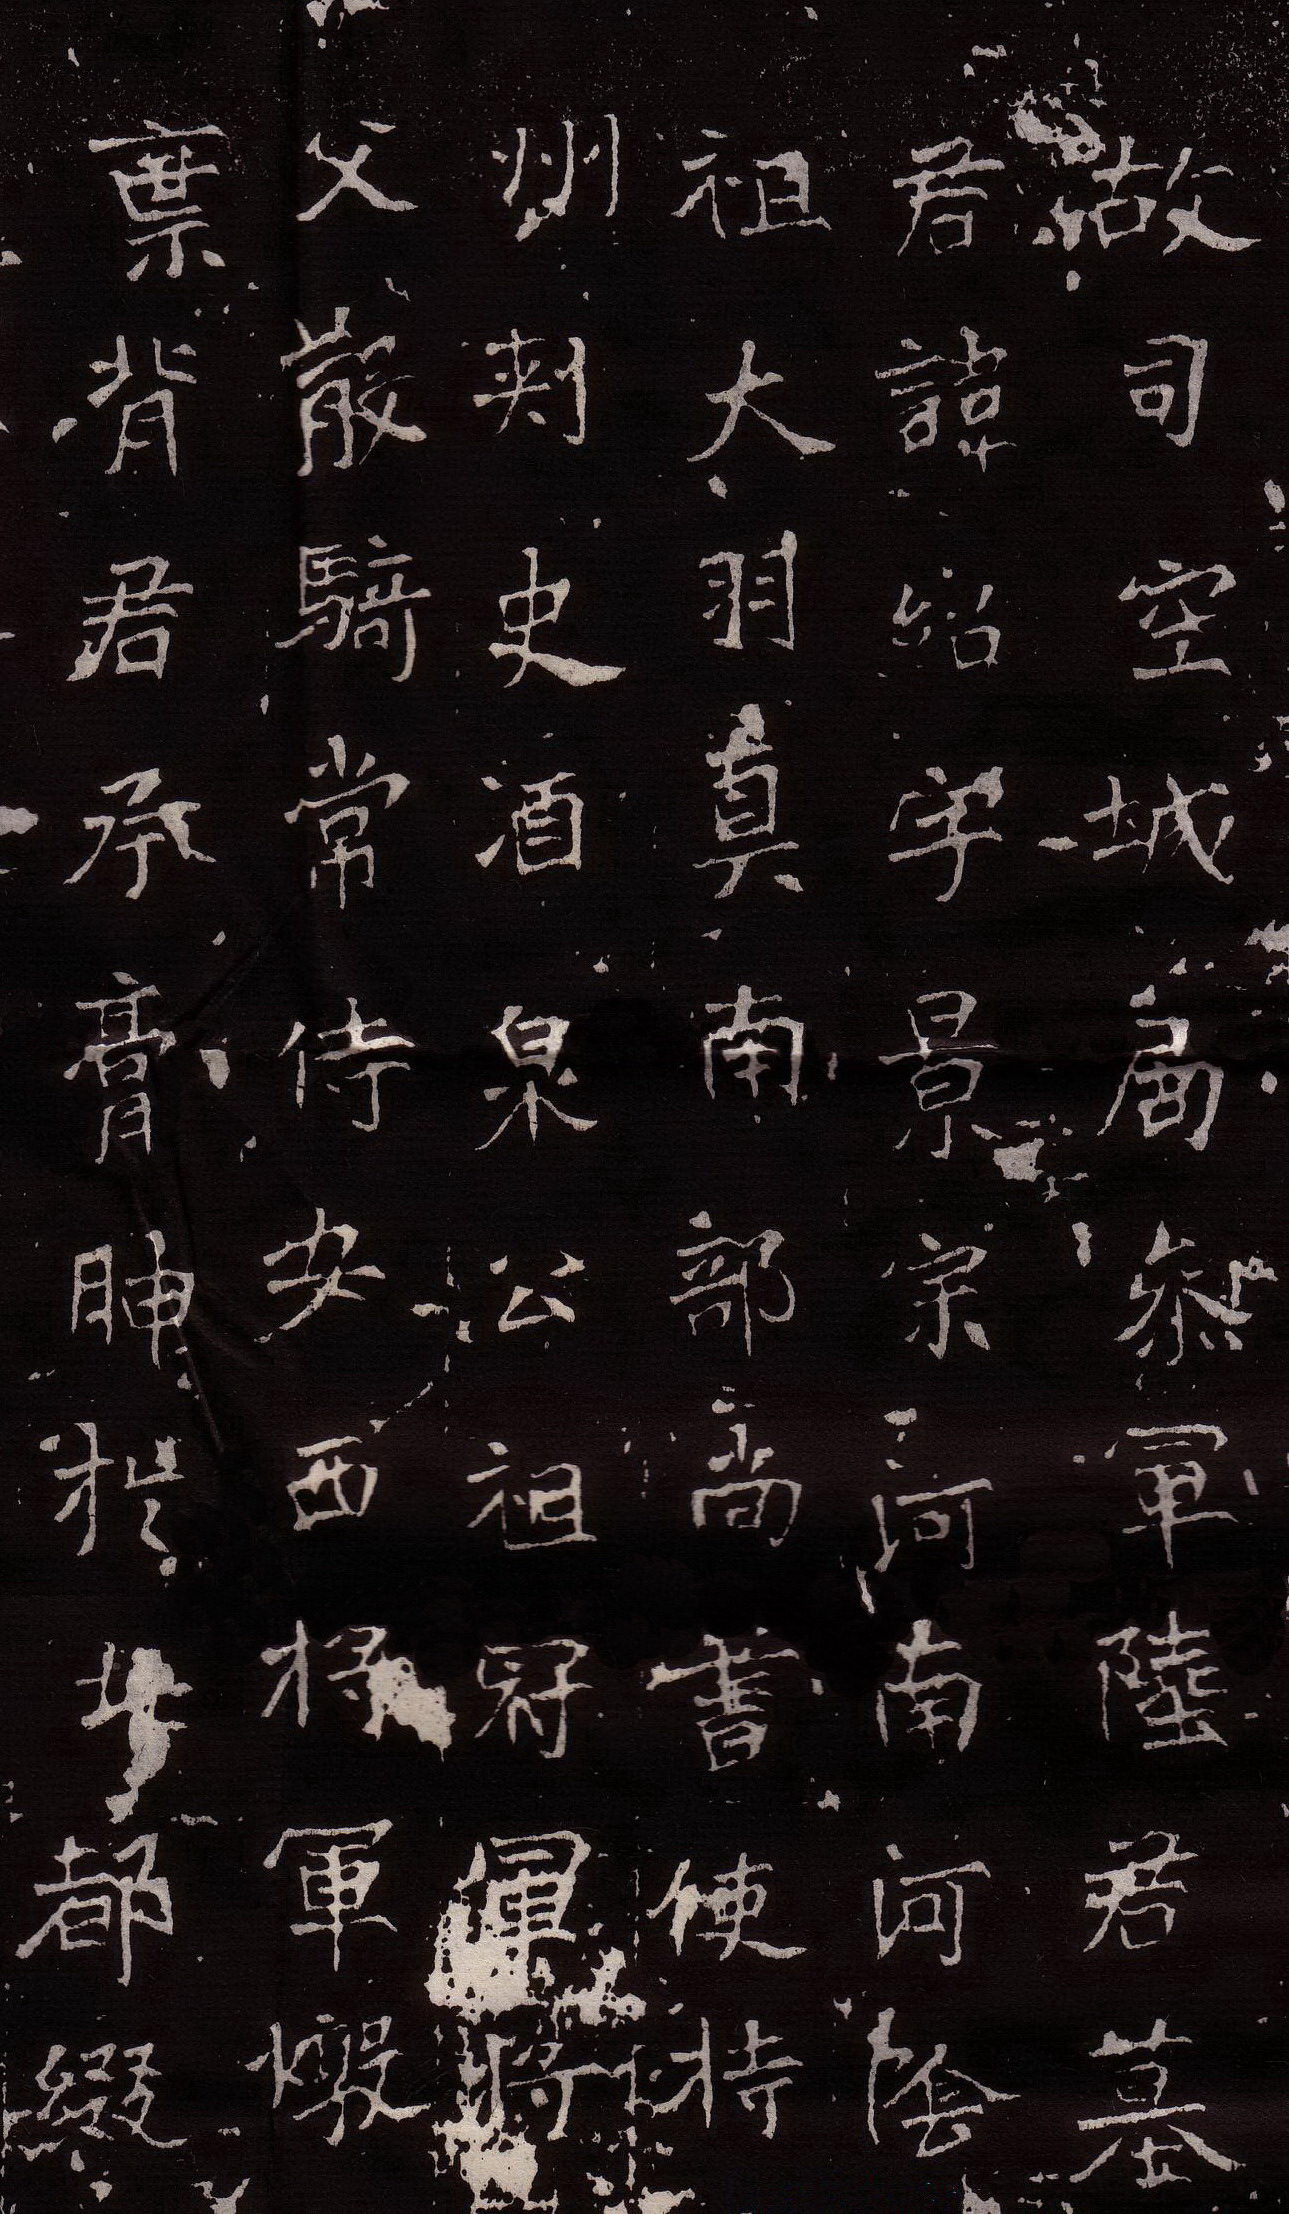 故司空城局參軍陸君墓
君諱紹字景宗河南河陰
祖大羽真南部尚書使持
州刺史酒泉公祖冠軍將
父散騎常侍安西將軍
葉背君承膏胂於 都綴